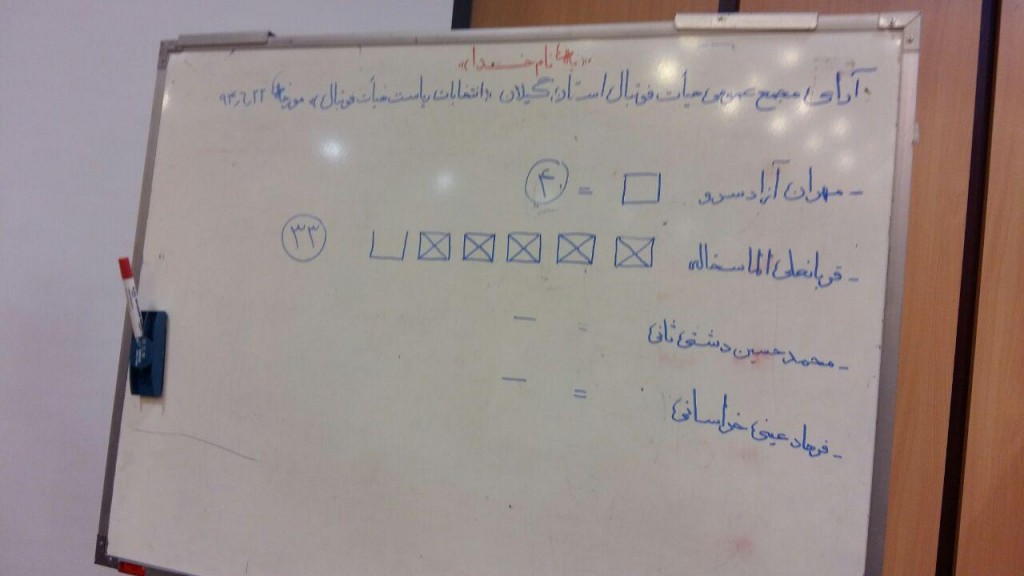 «به نام خدا»
آرای مجمع عمومی هیأت فوتبال استان گیلان «انتخابات ریاست هیأت فوتبال» مورخه ۹۴٫۶٫۲۲
- مهران آزاد سرو = ۴
- قربانعلی الماسخاله ۳۳
- محمد حسین دشتی ثانی = —
- فرهاد عینی خراسانی = —